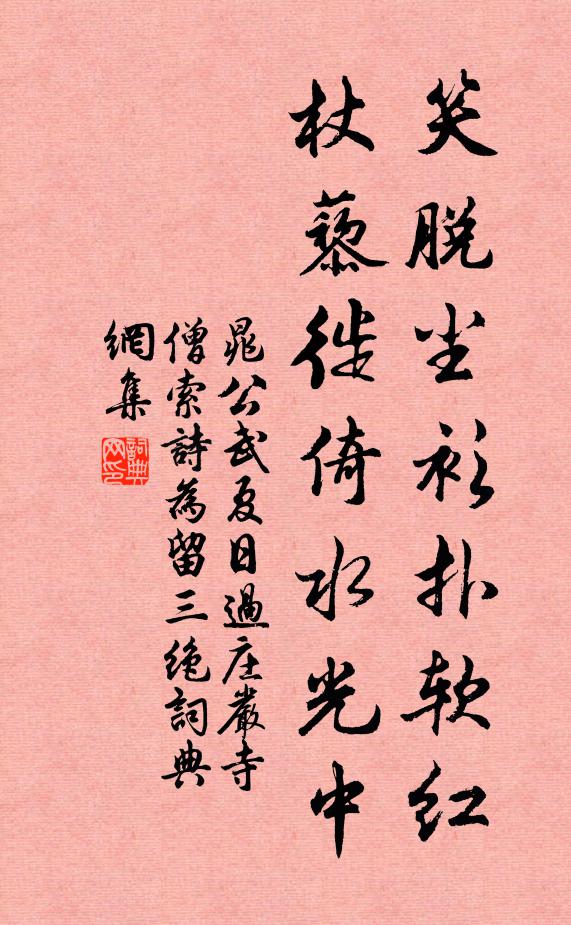 笑脱尘衫扑软红
杖藜徙倚水光中
晁公武夏日過庄嚴寺
僧索詩為留三絶詞典
網集
詞典网印